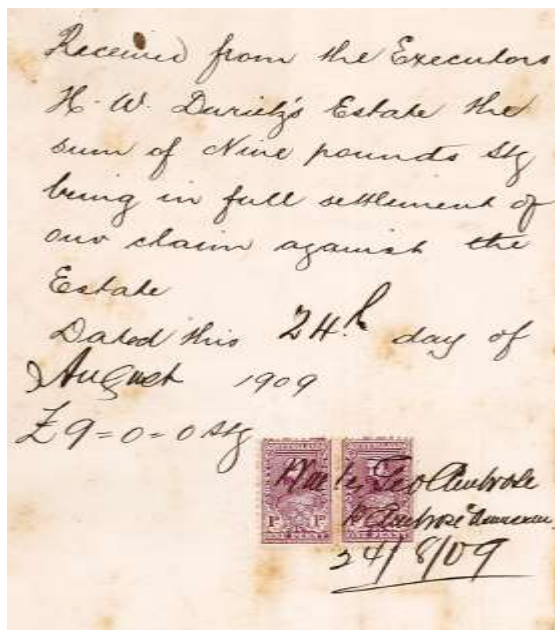 Received from the Executors
H. W. Darietz's Estate the
sum of Nine pounds Stg
being in full settlement of
our claim against the
Estate
Dated this 24th day of
August 1909
£9=0=0 Stg
Geo Ambrose
Ambrose
24/8/09
1D 1D
ONE PENNY ONE PENNY